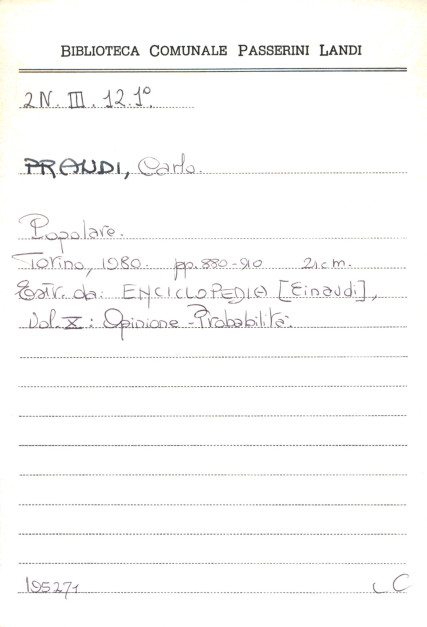 BIBLIOTECA COMUNALE PASSERINI LANDI
2N. III. 12.1°
PRANDI, Carlo.
Popolare.
Torino, 1980. pp. 880-910 21cm.
Estr. da: ENCICLOPEDIA [Einaudi],
Vol. X: Opinione-Probabilità.
195271
LC